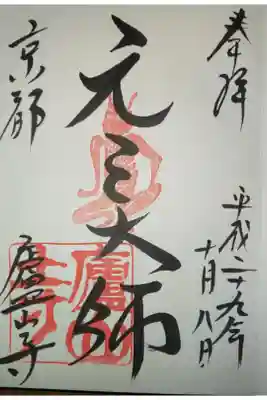 奉拝
平成二十九年
十月八日
元三大師
京都
廬山寺